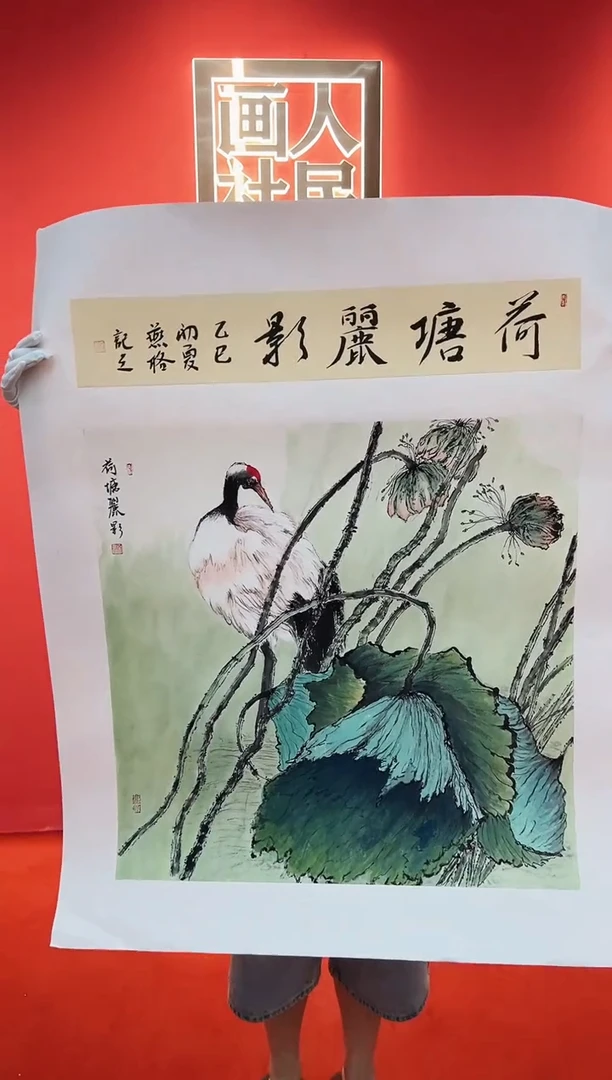 人民
画社
荷塘麗影
乙巳
初夏
燕
記之
荷塘麗影